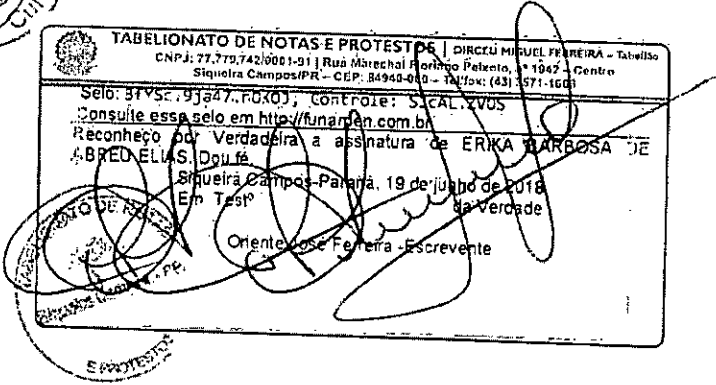 TABELIONATO DE NOTAS E PROTESTOS | DIRCEU MIGUEL FERREIRA - Tabelião
CNPJ: 77.779.742/0001-91 | Rua Marechal Floriano Peixoto, nº 1942 - Centro
Siqueira Campos/PR - CEP: 84940-000 - Tel/fax: (43) 3571-1608
Selo: Controle:
Consulte esse selo em http://funarpen.com.br
Reconheço por Verdadeira a assinatura de ERIKA BARBOSA DE
ABREU ELIAS. Dou fé.
Siqueira Campos-Paraná, 19 de de 2018
Em Testº da Verdade
Oriente José Ferreira -Escrevente
E PROTESTOS